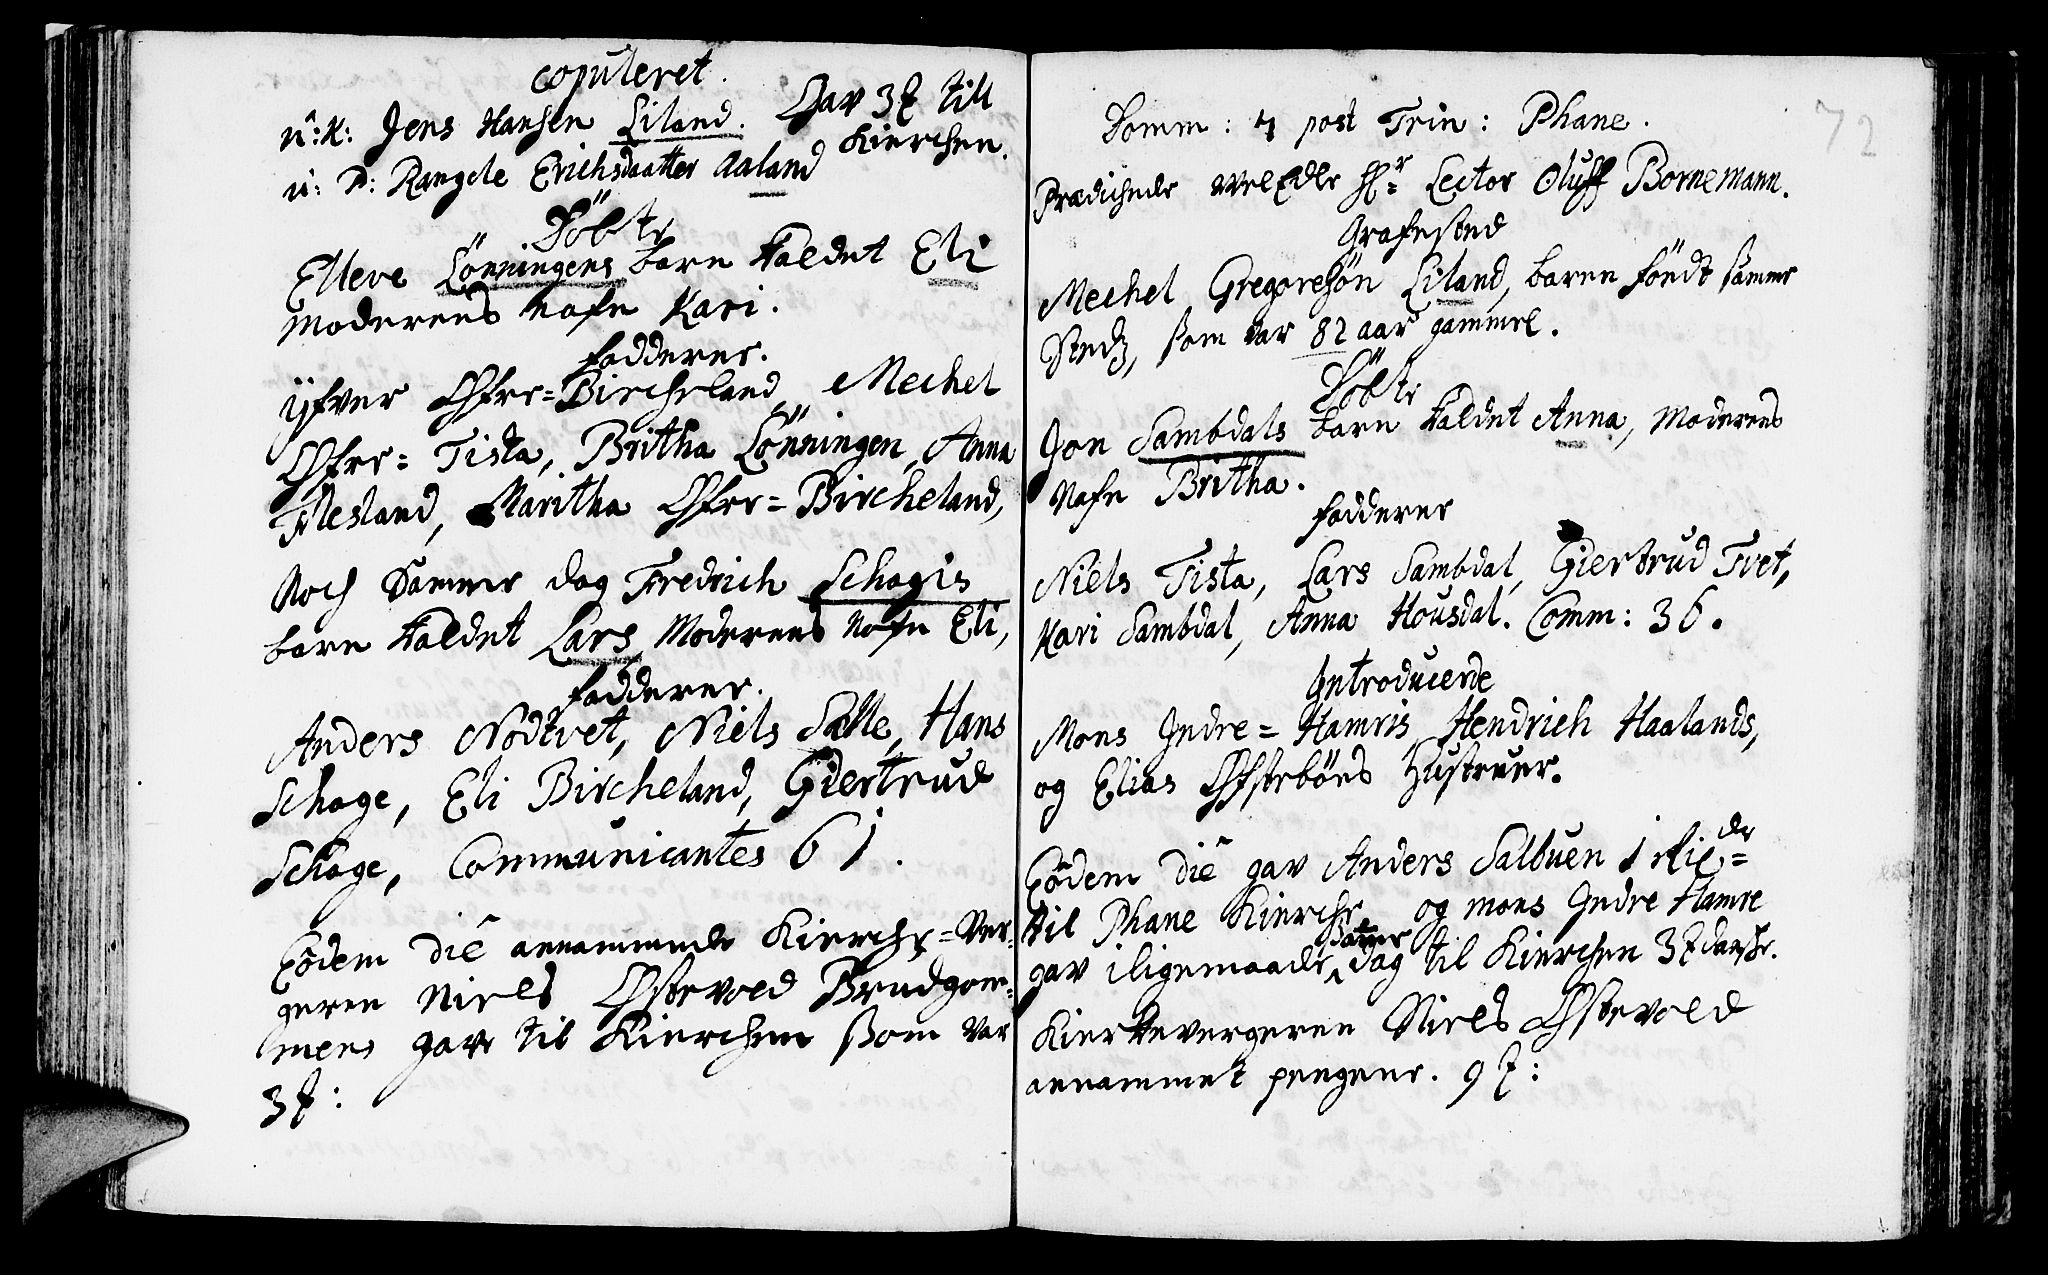 copuleret.
u: K: Jens Hansen Liland. Gav 3 ꝥ till
Kierchen.
u: P: Rangele Erichsdaatter Aaland
Döbte
Elleve Lönningens barn kaldet Eli
Moderens nafn Kari.
fadderer.
ÿfver Öfre=Bircheland, Mechel
Öfre= Tista, Britha Lönningen, Anna
Flesland, Maritha Öfre=Bircheland,
Noch Samme dag Fredrich Schagis
barn kaldet Lars, Moderens Nafn Eli,
fadderer.
Anders Nödtvet, Niels Sælle, Hans
Schage, Eli Bircheland, Giertrud
Schage, Communicantes 61.
Eödem die annammede Kierche=Ver-
geren Niels Östevold Brudgom-
mens gave til Kierchen som var
3 ꝥ:
72
Domm: 7 post Trin: Phane.
Prædichede WelEdle Hr Lector Oluff Bornemann.
Grafested
Mechel Gregoresön Liland, baren födt samme
Stedz, som var 82 aar gammel.
Döbte
Jon Sambdals barn kaldet Anna, Moderens
Nafn Britha.
fadderer
Niels Tista, Lars Sambdal, Giertrud Tvet,
Kari Sambdal, Anna Housdal. Comm: 36.
Introducerde
Mons Indre=Hamris, Hendrich Haalands,
og Elias Öfstebøes Hustruer.
Eödem die gav Anders Salbuen 1
til Phane Kierche og mons Indre Hamre
gav iligemaade samme dag til Kierchen 3 ꝥ danske.
Kierkevergeren Niels Östevold
annammet pengene. 9 ꝥ: